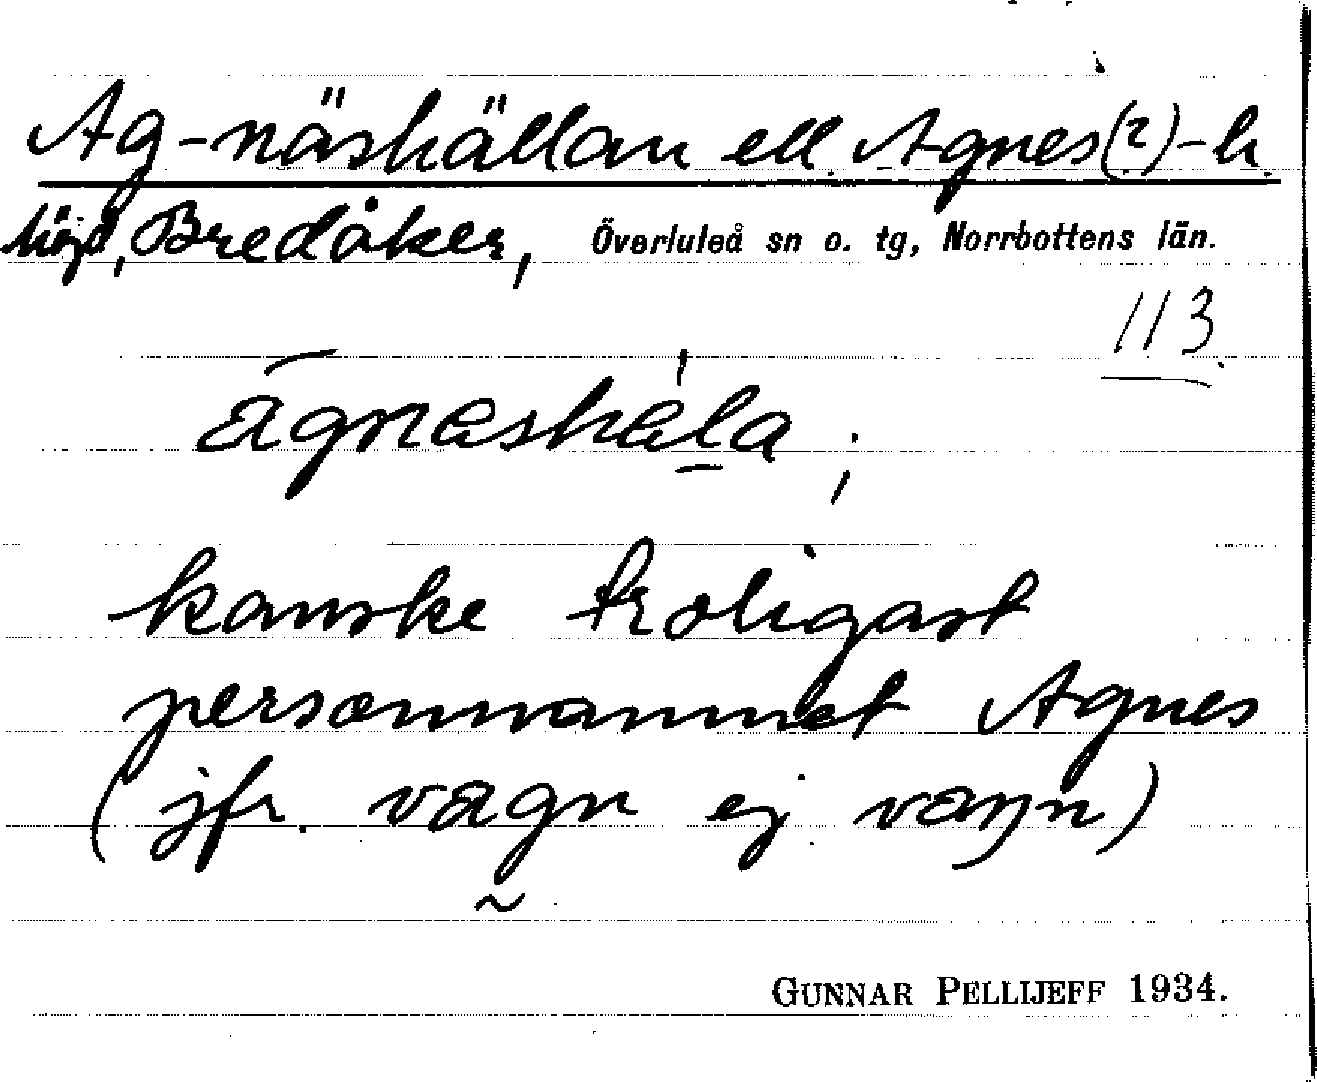 Ag-näshällan ell. Agnes(?)-h.
höjd, Bredåker, Överluleå sn o. tg, Norrbottens län.
113.
āgnashál̲a ;
kanske troligast
personnamnet Agnes
(jfr. vagn ej vaŋn)
GUNNAR PELLIJEFF 1934.